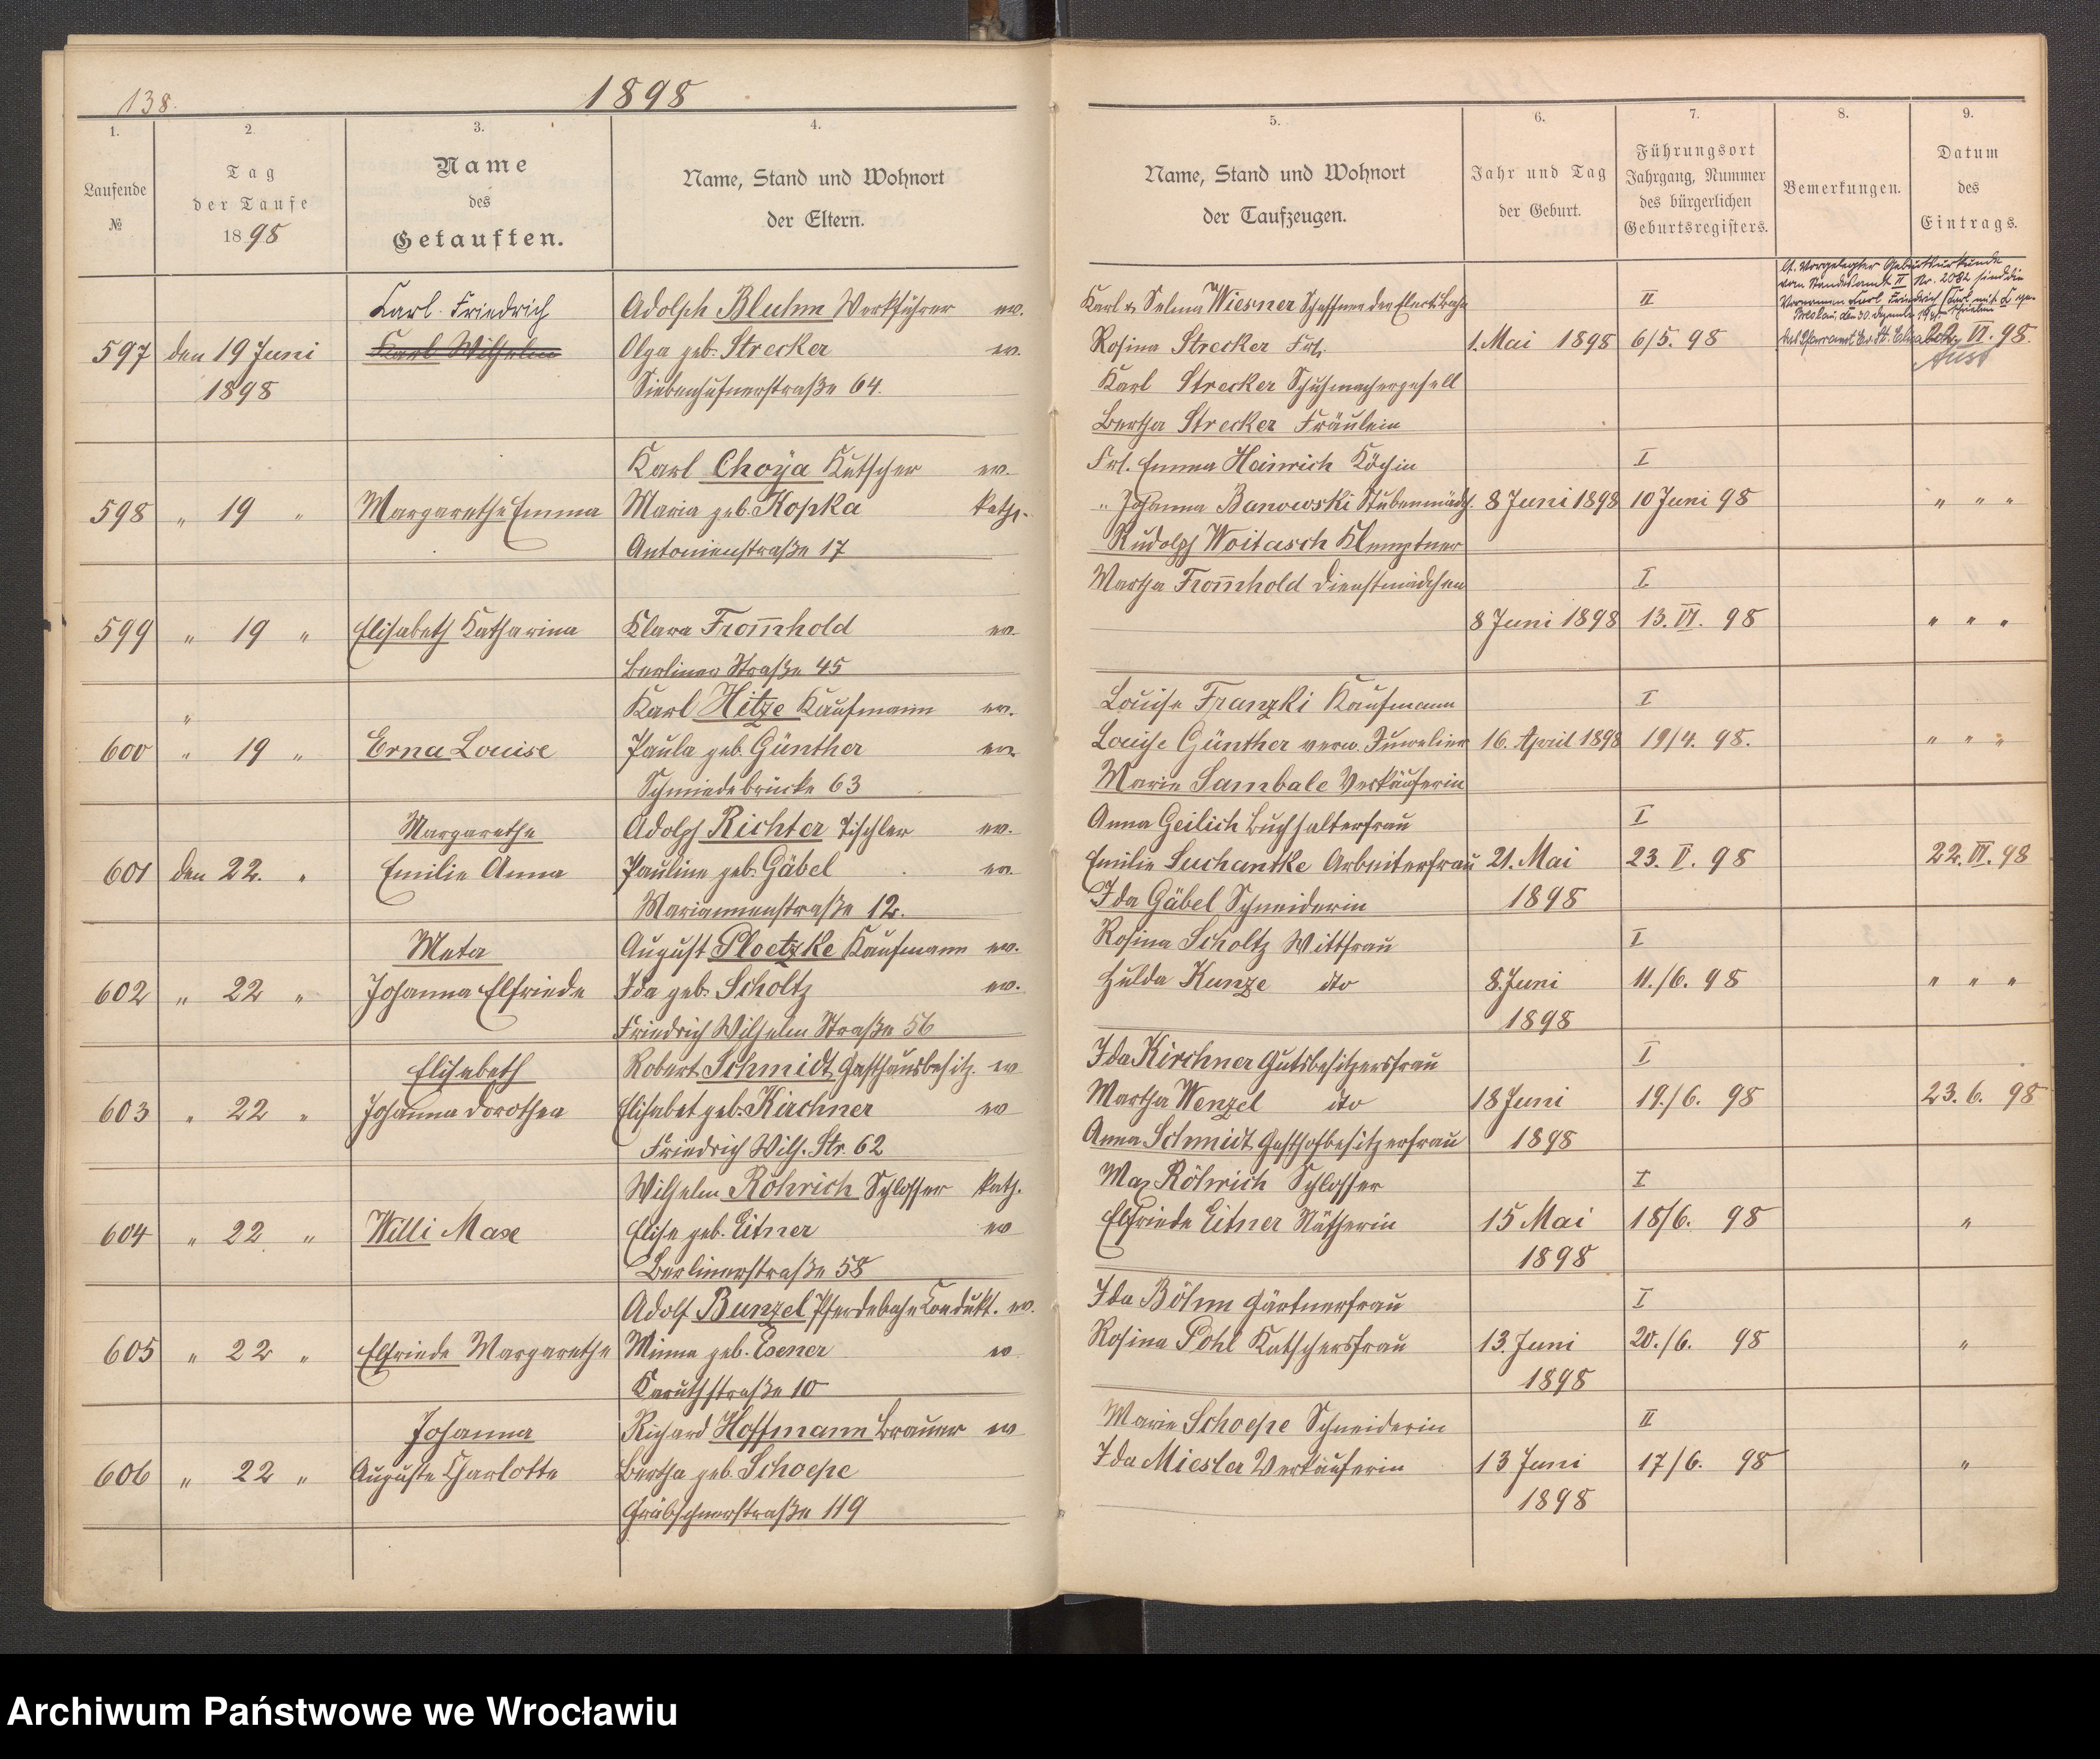 138.
1898
1.
Laufende
№
2.
Tag
der Taufe
1898
3.
Name
des
Getauften.
4.
Name, Stand und Wohnort
der Eltern.
5.
Name, Stand und Wohnort
der Taufzeugen.
6.
Jahr und Tag
der Geburt.
7.
Führungsort
Jahrgang, Nummer
des bürgerlichen
Geburtsregisters.
8.
Bemerkungen.
9.
Datum
des
Eintrags.
Karl Friedrich
597 den 19 Juni Karl Wilhelm
1898
Adolph Bluhm Werkführer ev.
Olga geb. Strecker ev.
Siebenhufnerstraße 64.
Karl & Selma Wiesner Schaffner der Elect. Bahn II
Rosina Strecker Frl. 1. Mai 1898 6/5. 98
Karl Strecker Schuhmachergesell
Bertha Strecker Fräulein
lt. Vorgelegter Geburtsurkunde
vom Standesamt II Nr. 2082 sind die
Vornamen Karl Friedrich
Breslau, den 30. Dezember
Das Pfarramt Ev. St. Elisabeth
VI. 98.
Karl Choÿa Kutscher ev.
598 " 19 " Margarethe Emma Maria geb. Kopka kath.
Antonienstraße 17
Frl. Emma Heinrich Köchin I
" Johanna Banowski Stubenmädch. 8 Juni 1898 10 Juni 98 " " "
Rudolph Woitasch Klemptner
599 " 19 " Elisabeth Katharina Klara Fromhold ev.
Berliner Straße 45
Martha Fromhold Dienstmädchen I
8 Juni 1898 13. VI. 98 " " "
Karl Hitze Kaufmann ev.
600 " 19 " Erna Louise Paula geb. Günther ev.
Schmiedebrücke 63
Louise Franzki Kaufmann I
Louise Günther verw. Juwelier 16. April 1898 19/4. 98. " " "
Marie Sambale Verkäuferin
Margarethe Adolph Richter Tischler ev.
601 den 22. " Emilie Anna Pauline geb. Gäbel ev.
Mariannenstraße 12.
Anna Geilich Buchhalterfrau I
Emilie Suchantke Arbeiterfrau 21. Mai 23. V. 98 22. VI. 98
Ida Gäbel Schneiderin 1898
Meta August Ploetzke Kaufmann ev.
602 " 22 " Johanna Elfriede Ida geb. Scholtz ev.
Friedrich Wilhelm Straße 56
Rosina Scholtz Wittfrau I
Hulda Kunze dto 8. Juni 11./6. 98 " " "
1898
Elisabeth Robert Schmidt Gasthausbesitz. ev
603 " 22 " Johanna Dorothea Elisabet geb. Kirchner ev
Friedrich Wilh. Str. 62
Ida Kirchner Gutsbesitzersfrau I
Martha Wenzel dto 18 Juni 19./6. 98 23. 6. 98
Anna Schmidt Gasthofbesitzerfrau 1898
Wilhelm Röhrich Schlosser kath.
604 " 22 " Willi Max Elise geb. Eitner ev
Berlinerstraße 58
Max Röhrich Schlosser I
Elfriede Eitner Nätherin 15 Mai 18/6. 98 "
1898
Adolf Bunzel Pferdebahn Kondukt. ev.
605 " 22 " Elfriede Margarethe Minna geb. Exner ev
Karuthstraße 10
Ida Böhm Gärtnerfrau I
Rosina Pohl Kutschersfrau 13. Juni 20./6. 98 "
1898
Johanna Richard Hoffmann Brauer ev
606 " 22 " Auguste Charlotte Bertha geb. Schoepe
Gräbschnerstraße 119
Marie Schoepe Schneiderin II
Ida Miesler Verkäuferin 13 Juni 17/6. 98 "
1898
Archiwum Państwowe we Wrocławiu